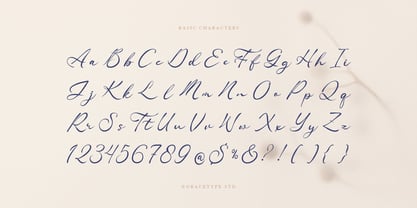 BASIC CHARACTERS
Aa Bb Cc Dd Ee Ff Gg Hh Ii
Jj Kk Ll Mm Nn Oo Pp Qq
Rr Ss Tt Uu Vv Ww Xx Yy Zz
1234567890 @ $ % & ? ! ( ) { }